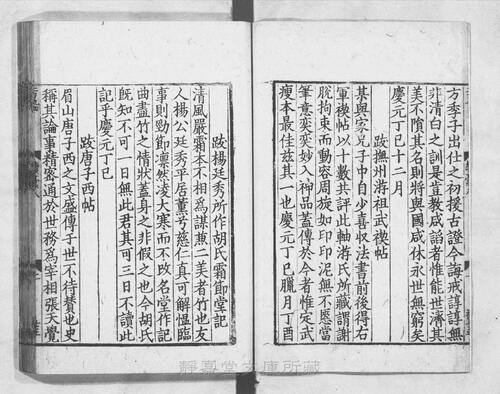 方季子出仕之初援古證今誨戒諄諄無
非清白之訓是直教咸諂者惟能世濟其
美不隕其名則將與國咸休永世無窮矣
慶元丁巳十二月
跋撫州游祖武禊帖
其與家兄子中自少喜収法書前後得右
軍禊帖以十數共評此軸游氏所藏謂謝
脫拘束而動容周旋如印印泥無不愿當
筆意奕奕妙入神品蓋傳於今者惟定武
瘦本最佳兹其一也慶元丁巳臘月丁酉
跋楊廷秀所作胡氏霜節堂記
清風嚴霜本不相為謀兼二美者竹也友
人楊公廷秀平居薰兮慈仁真可解愠臨
事則勁節凛然凌大寒而不改名堂作記
曲盡竹之情狀蓋身之非假之也今胡氏
既知不可一日無此君其可三日不讀此
記乎慶元丁巳
跋唐子西帖
眉山唐子西之文盛傳于世不待賛也史
稱其論事精密通於世務爲宰相張天覺
靜嘉堂文庫所藏